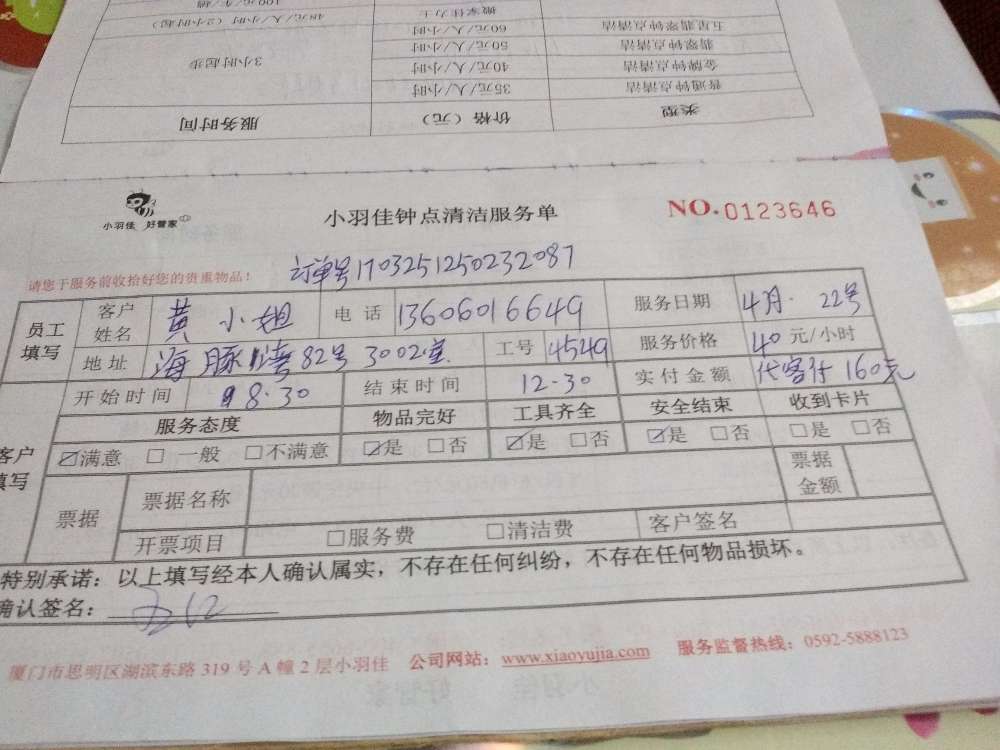 类型 价格（元） 服务时间
普通钟点清洁 35元/人/小时 3小时起步
金牌钟点清洁 40元/人/小时
翡翠钟点清洁 50元/人/小时
五星翡翠钟点清洁 60元/人/小时
搬家佳力士 48元/人/小时（2小时起）
小羽佳 好管家
小羽佳钟点清洁服务单
NO.0123646
请您于服务前收拾好您的贵重物品！
订单号1703251250232087
员工填写 客户姓名 黄小姐 电话 13606016649 服务日期 4月.22号
地址 海脉 82号3002室 工号 4549 服务价格 40元/小时
开始时间 8.30 结束时间 12.30 实付金额 代客付160元
客户填写 服务态度 物品完好 工具齐全 安全结束 收到卡片
☑满意 □一般 □不满意 ☑是 □否 ☑是 □否 ☑是 □否 □是 □否
票据 票据名称 票据金额
开票项目 □服务费 □清洁费 客户签名
特别承诺：以上填写经本人确认属实，不存在任何纠纷，不存在任何物品损坏。
确认签名：
厦门市思明区湖滨东路319号A幢2层小羽佳 公司网站：www.xiaoyujia.com 服务监督热线：0592-5888123